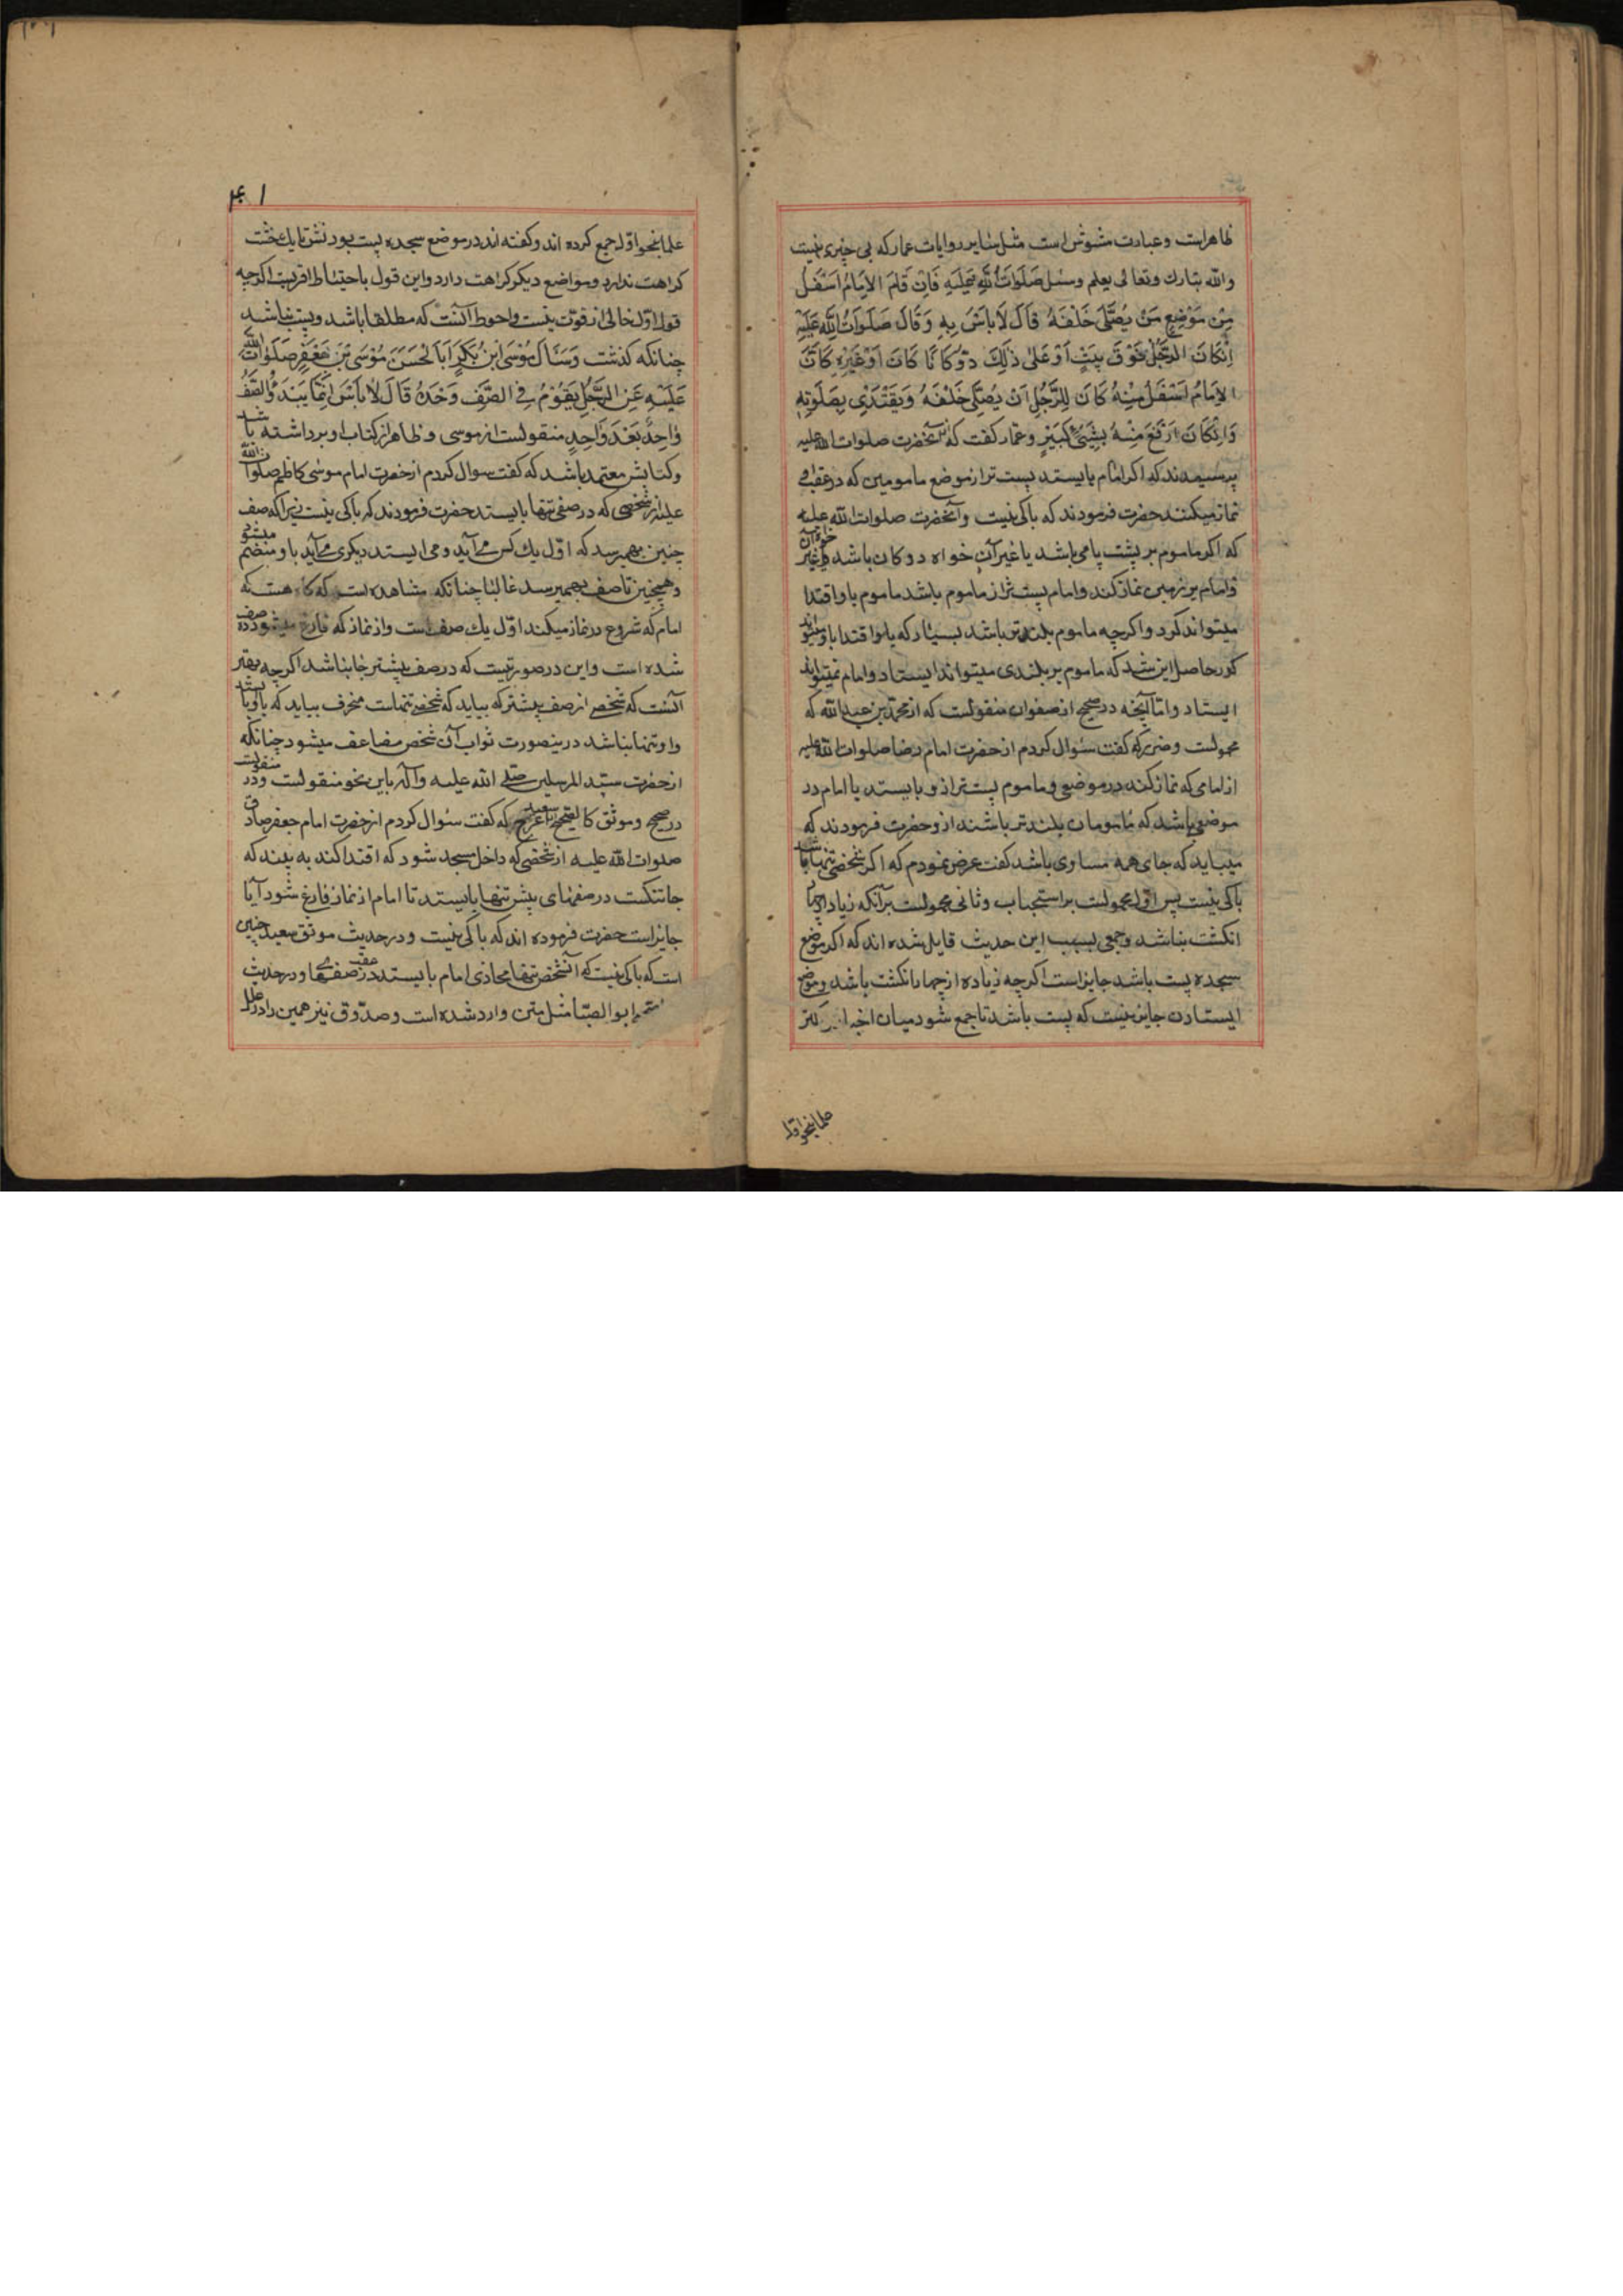 ظاهر است و عبارت مشوش است مثل سایر روایات عمار که بی چیزی نیست
والله تبارک وتعالی یعلم وسئل صَلَوَاتُ اللهِ عَلَیْهِ فَاِنْ قَامَ الاِمَامُ اَسْفَلَ
مِنْ مَوْضِعِ مَنْ یُصَلِّی خَلْفَهُ قَالَ لَا بَاْسَ بِهِ وَقَالَ صَلَوَاتُ اللهِ عَلَیْهِ
اِنْ کَانَ الرَّجُلُ فَوْقَ بَیْتٍ اَوْ عَلیٰ ذٰلِكَ دُوکَانًا کَانَ اَوْ غَیْرَهُ کَانَ
الاِمَامُ اَسْفَلَ مِنْهُ کَانَ لِلرَّجُلِ اَنْ یُصَلِّیَ خَلْفَهُ وَیَقْتَدِیَ بِصَلَوتِهِ
وَاِنْ کَانَ اَرْفَعَ مِنْهُ بِشَیْءٍ کَبِیْرٍ وعمار کفت که از آنحضرت صلوات الله علیه
پرسیدند که اکر امام بایستد پست تر از موضع مامومین که در عقب او
نماز میکنند حضرت فرمودند که باکی نیست وآنحضرت صلوات الله علیه
که اکر ماموم بر پشت بامی باشد یا غیر آن خواه دوکان باشد خواه غیر آن
وامام بر زمین نماز کند وامام پست تر از ماموم باشد ماموم باو اقتدا
میتواند کرد واکرچه ماموم بلندتر باشد بسیار که با او اقتدا باو میتواند
کرد حاصل این شد که ماموم بر بلندی میتواند ایستاد وامام نمیتواند
ایستاد واما آنچه در صحیح از صفوان منقولست که از محمد بن عبدالله که
مجهولست وضرر که کفت سئوال کردم از حضرت امام رضا صلوات الله علیه
از امامی که نماز کند در موضعی وماموم پست تر از و بایستد یا امام در
موضعی باشد که مامومان بلندتر باشند از و حضرت فرمودند که
میباید که جای همه مساوی باشد کفت عرض نمودم که اکر شخصی تنها باشد
باکی نیست پس اول محمولست بر استحباب وثانی محمولست بر آنکه زیاد از چهار
انکشت نباشد وجمعی بسبب این حدیث قایل شده اند که اکر موضع
سجده پست باشد جایز است اکرچه زیاده از چهار انکشت باشد وموضع
ایستادن جایز نیست که پست باشد تا جمع شود میان اخبار اکثر
علما بنحو اول
۴۰۱
علما بنحو اول جمع کرده اند وکفته اند در موضع سجده پست بودنش تا یك خشت
کراهت ندارد ومواضع دیکر کراهت دارد واین قول باحتیاط اقربست اکرچه
قول اول خالی از قوت نیست واحوط آنست که مطلقا باشد وپست نباشد
چنانکه کذشت وَسَئَالَ مُوْسَی ابْنُ بَکْرٍ اَبَا الْحَسَنِ مُوْسَی بْنَ جَعْفَرٍ صَلَوَاتُ اللهِ
عَلَیْهِ عَنِ الرَّجُلِ یَقُوْمُ فِی الصَّفِّ وَحْدَهُ قَالَ لَا بَاْسَ اِنَّمَا یَبْدَؤُ الصَّفُّ
وَاحِدٌ بَعْدَ وَاحِدٍ منقولست از موسی وظاهرا از کتاب او برداشته باشد
وکتابش معتمد باشد که کفت سوال کردم از حضرت امام موسی کاظم صلوات الله
علیه از شخصی که در صفی تنها بایستد حضرت فرمودند که باکی نیست زیرا که صف
چنین بهم میرسد که اول یك کس می آید ومی ایستد دیکری می آید باو منضم میشود
وهمچنین تا صف بهم میرسد غالبا چنانکه مشاهده است که کاه هست که
امام که شروع در نماز میکند اول یك صف است واز نماز که فارغ میشود ده صف
شده است واین در صورتیست که در صف پیشتر جا نباشد اکرچه بهتر
آنست که شخصی از صف پیشتر که بیابد که شخصی تنهاست منحرف بیاید که با او بایستد
واو تنها نباشد در ینصورت ثواب آن شخص مضاعف میشود چنانکه
از حضرت سید المرسلین صلی الله علیه وآله باین نحو منقولست ودر
در صحیح وموثق کالصحیح از سعید اعرج که کفت سئوال کردم از حضرت امام جعفر صادق
صلوات الله علیه از شخصی که داخل مسجد شود که اقتدا کند به بیند که
جا تنکست در صفهای پیش تنها بایستد تا امام از نماز فارغ شود آیا
جایز است حضرت فرموده اند که باکی نیست ودر حدیث موثق سعید چنین
است که باکی نیست که آنشخص تنها محاذی امام بایستد در عقب صفها ودر حدیث
ابو الصباح مثل متن وارد شده است وصدوق نیز همین را در علل